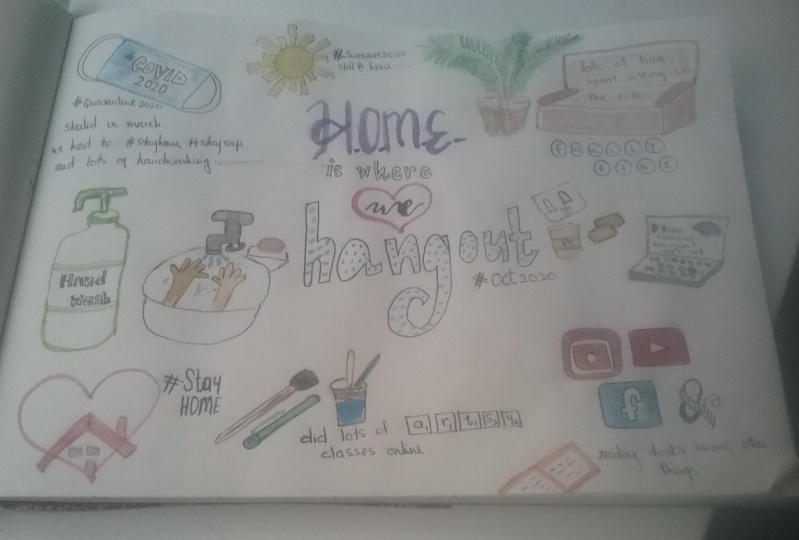 #COVID
2020
#Quarantine 2020
started in march
we had to #stayhome #staysafe
and lots of handwashing
#Summer2020
still @ home
lots of time
spent sitting on
the sofa
family
time
HOME
is where
we
hangout
#Oct2020
Hand
Wash
#Stay
HOME
did lots of artsy
classes online.
f
reading books among other
things